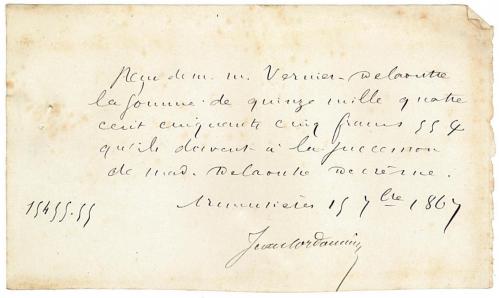 Reçu de m. m. Vernier-Delaoutre
la somme de quinze mille quatre
cent cinquante cinq francs 55 c
qu'ils doivent à la succession
de mad. Delaoutre Decrème.
15455.55 Armentières 15 7bre 1867